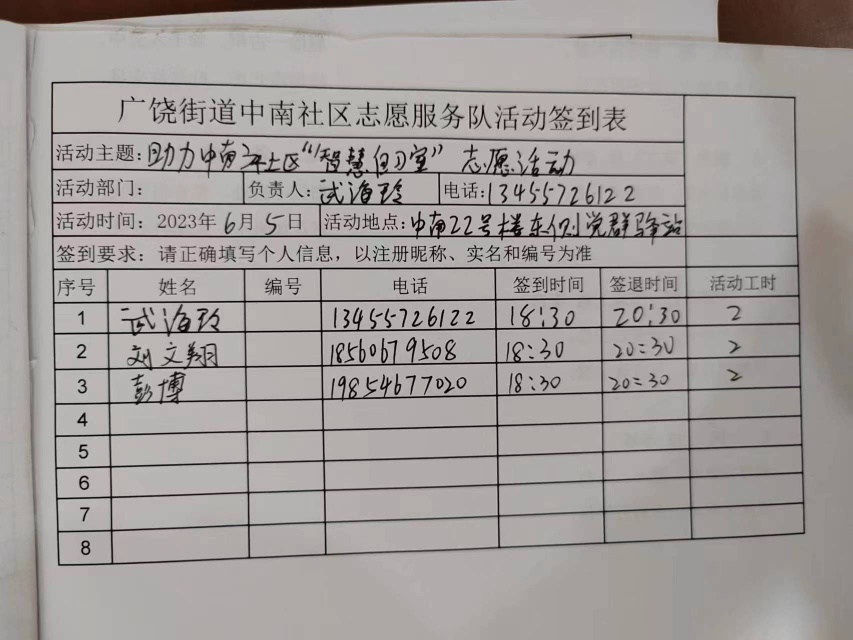 广饶街道中南社区志愿服务队活动签到表
活动主题：助力中南社区“智慧自习室” 志愿活动
活动部门： 负责人：武海玲 电话：13455726122
活动时间：2023年6月5日 活动地点：中南22号楼东侧党群驿站
签到要求：请正确填写个人信息，以注册昵称、实名和编号为准
序号 姓名 编号 电话 签到时间 签退时间 活动工时
1 武海玲 13455726122 18:30 20:30 2
2 刘文翔 18560679508 18:30 20:30 2
3 彭博 19854677020 18:30 20:30 2
4
5
6
7
8